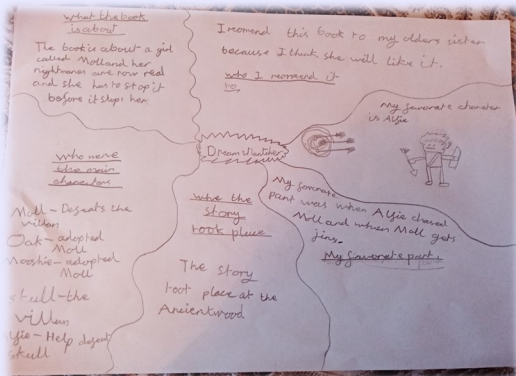 What the book
is about
The book is about a girl
called Moll and her
nightmares are now real
and she has to stop it
before it stops her
I recomend this book to my olders sister
because I think she will like it.
who I recomend it
to.
My favorate charater
is Alfie
Dream snatcher
Who were
the main
charactors
Moll - Defeats the
villan
Oak - adopted
Moll
Mooshie - adopted
Moll
skull - the
villan
Alfie - Help defeat
skull
where the
story
took place
The story
toot place at the
Ancientwood
My favorate
part was when Alfie chased
Moll and when Moll gets
jinx.
My favorate part.